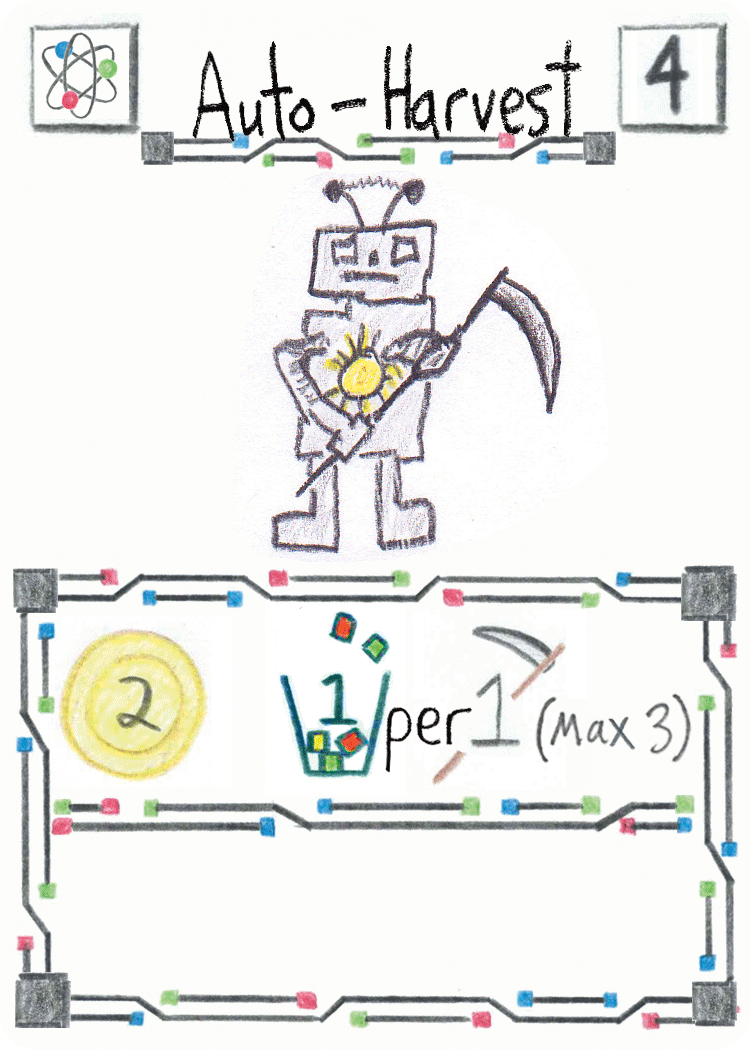 Auto-Harvest 4
2 1 per 1 (Max 3)